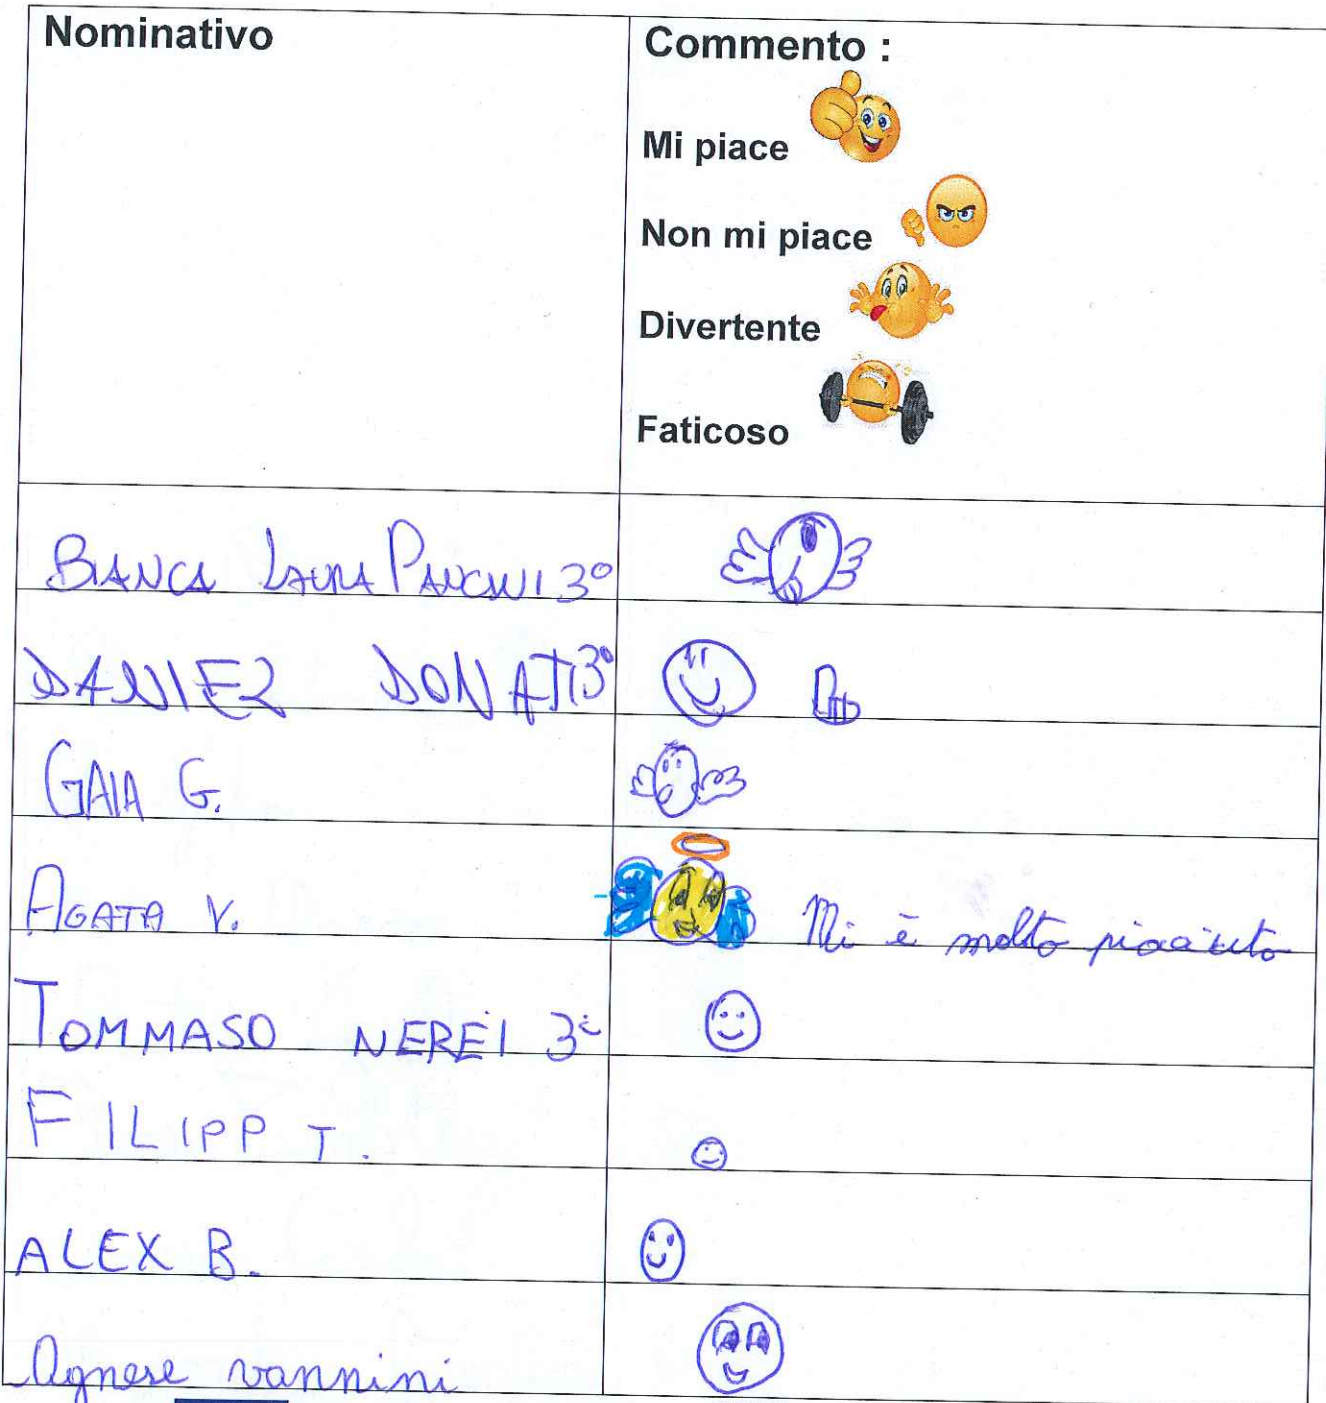 Nominativo
Commento :
Mi piace
Non mi piace
Divertente
Faticoso
BIANCA LAURA PANCINI 3°
DANIEL DONATI 3°
GAIA G.
AGATA V.
Mi è molto piaciuto
TOMMASO NEREI 3°
FILIPP T.
ALEX B.
Agnese vannini